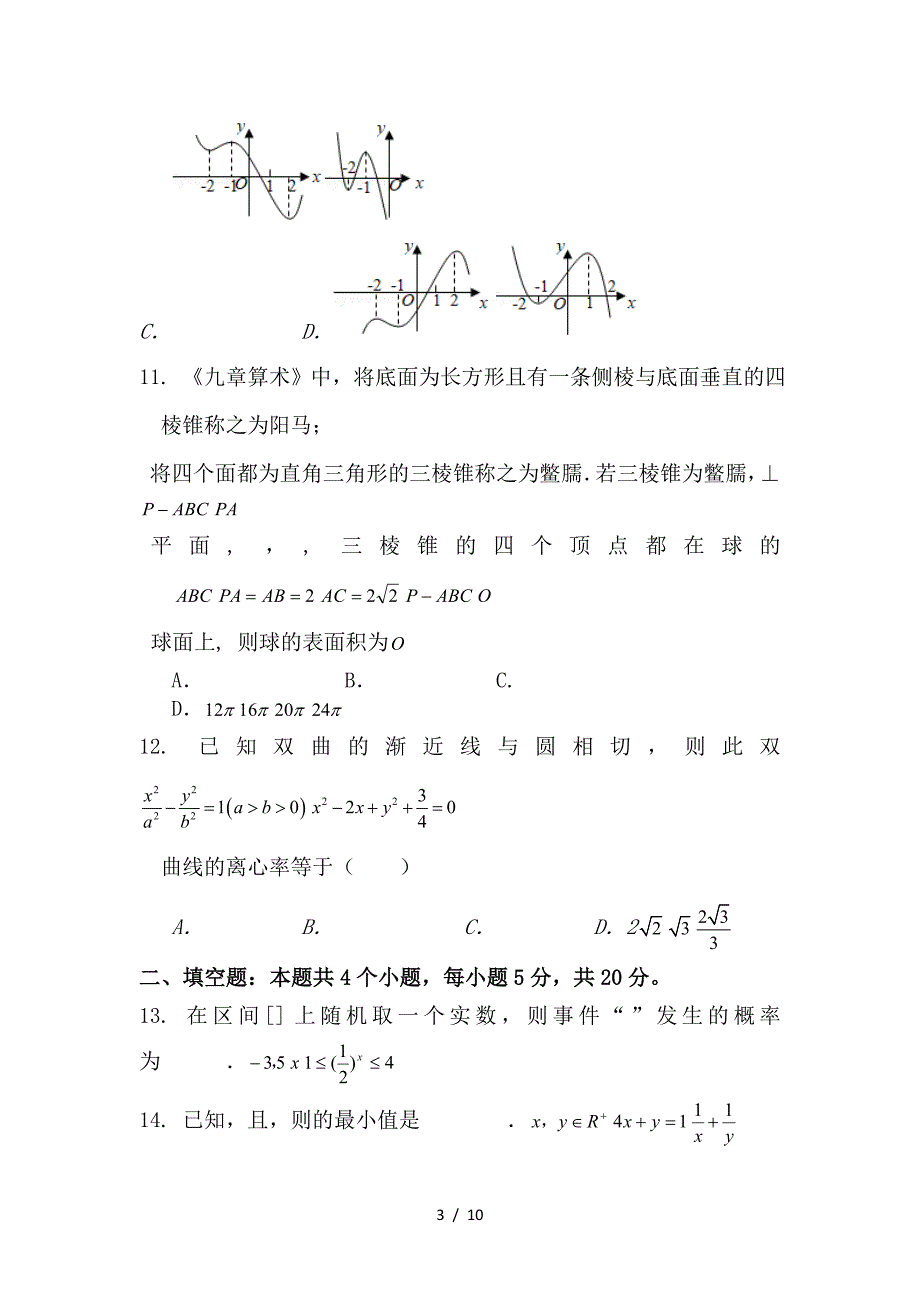 y
-2 -1 O 1 2 x
y
-2
-1 O x
y
-2 -1
O 1 2 x
y
-1 2
-2 O 1 x
C. D.
11. 《九章算术》中，将底面为长方形且有一条侧棱与底面垂直的四
棱锥称之为阳马；
将四个面都为直角三角形的三棱锥称之为鳖臑．若三棱锥为鳖臑，⊥
P − ABC PA
平面，，，三棱锥的四个顶点都在球的
ABC PA = AB = 2 AC = 2√2 P − ABC O
球面上，则球的表面积为O
A． B． C.
D．12π 16π 20π 24π
12. 已知双曲的渐近线与圆相切，则此双
x²/a² − y²/b² = 1(a > b > 0) x² − 2x + y² + 3/4 = 0
曲线的离心率等于（ ）
A. B. C. D. 2√2 √3 2√3/3
二、填空题：本题共4个小题，每小题5分，共20分。
13. 在区间[]上随机取一个实数，则事件“”发生的概率
为 ．−3,5 x 1 ≤ (1/2)^x ≤ 4
14. 已知，且，则的最小值是 ．x，y ∈ R⁺ 4x + y = 1 1/x + 1/y
3 / 10